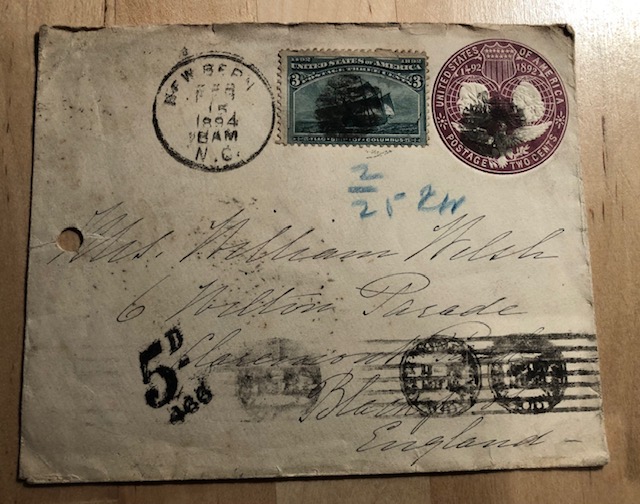 NEW BERN
FEB
15
1894
N.C.
1492 1892
UNITED STATES OF AMERICA
3 POSTAGE THREE CENTS 3
FLAG-SHIP OF COLUMBUS
UNITED STATES OF AMERICA
1492 1892
POSTAGE TWO CENTS
2
25
Mrs. William Welsh
6 Wilton Parade
5D
England